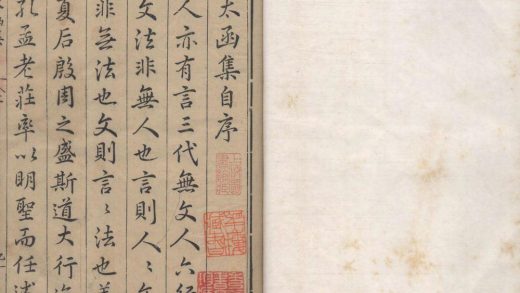 太函集自序
人亦有言三代無文人六經
文法非無人也言則人〻
非無法也文則言〻法也
夏后殷周之盛斯道大行
孔孟老莊率以明聖而任述